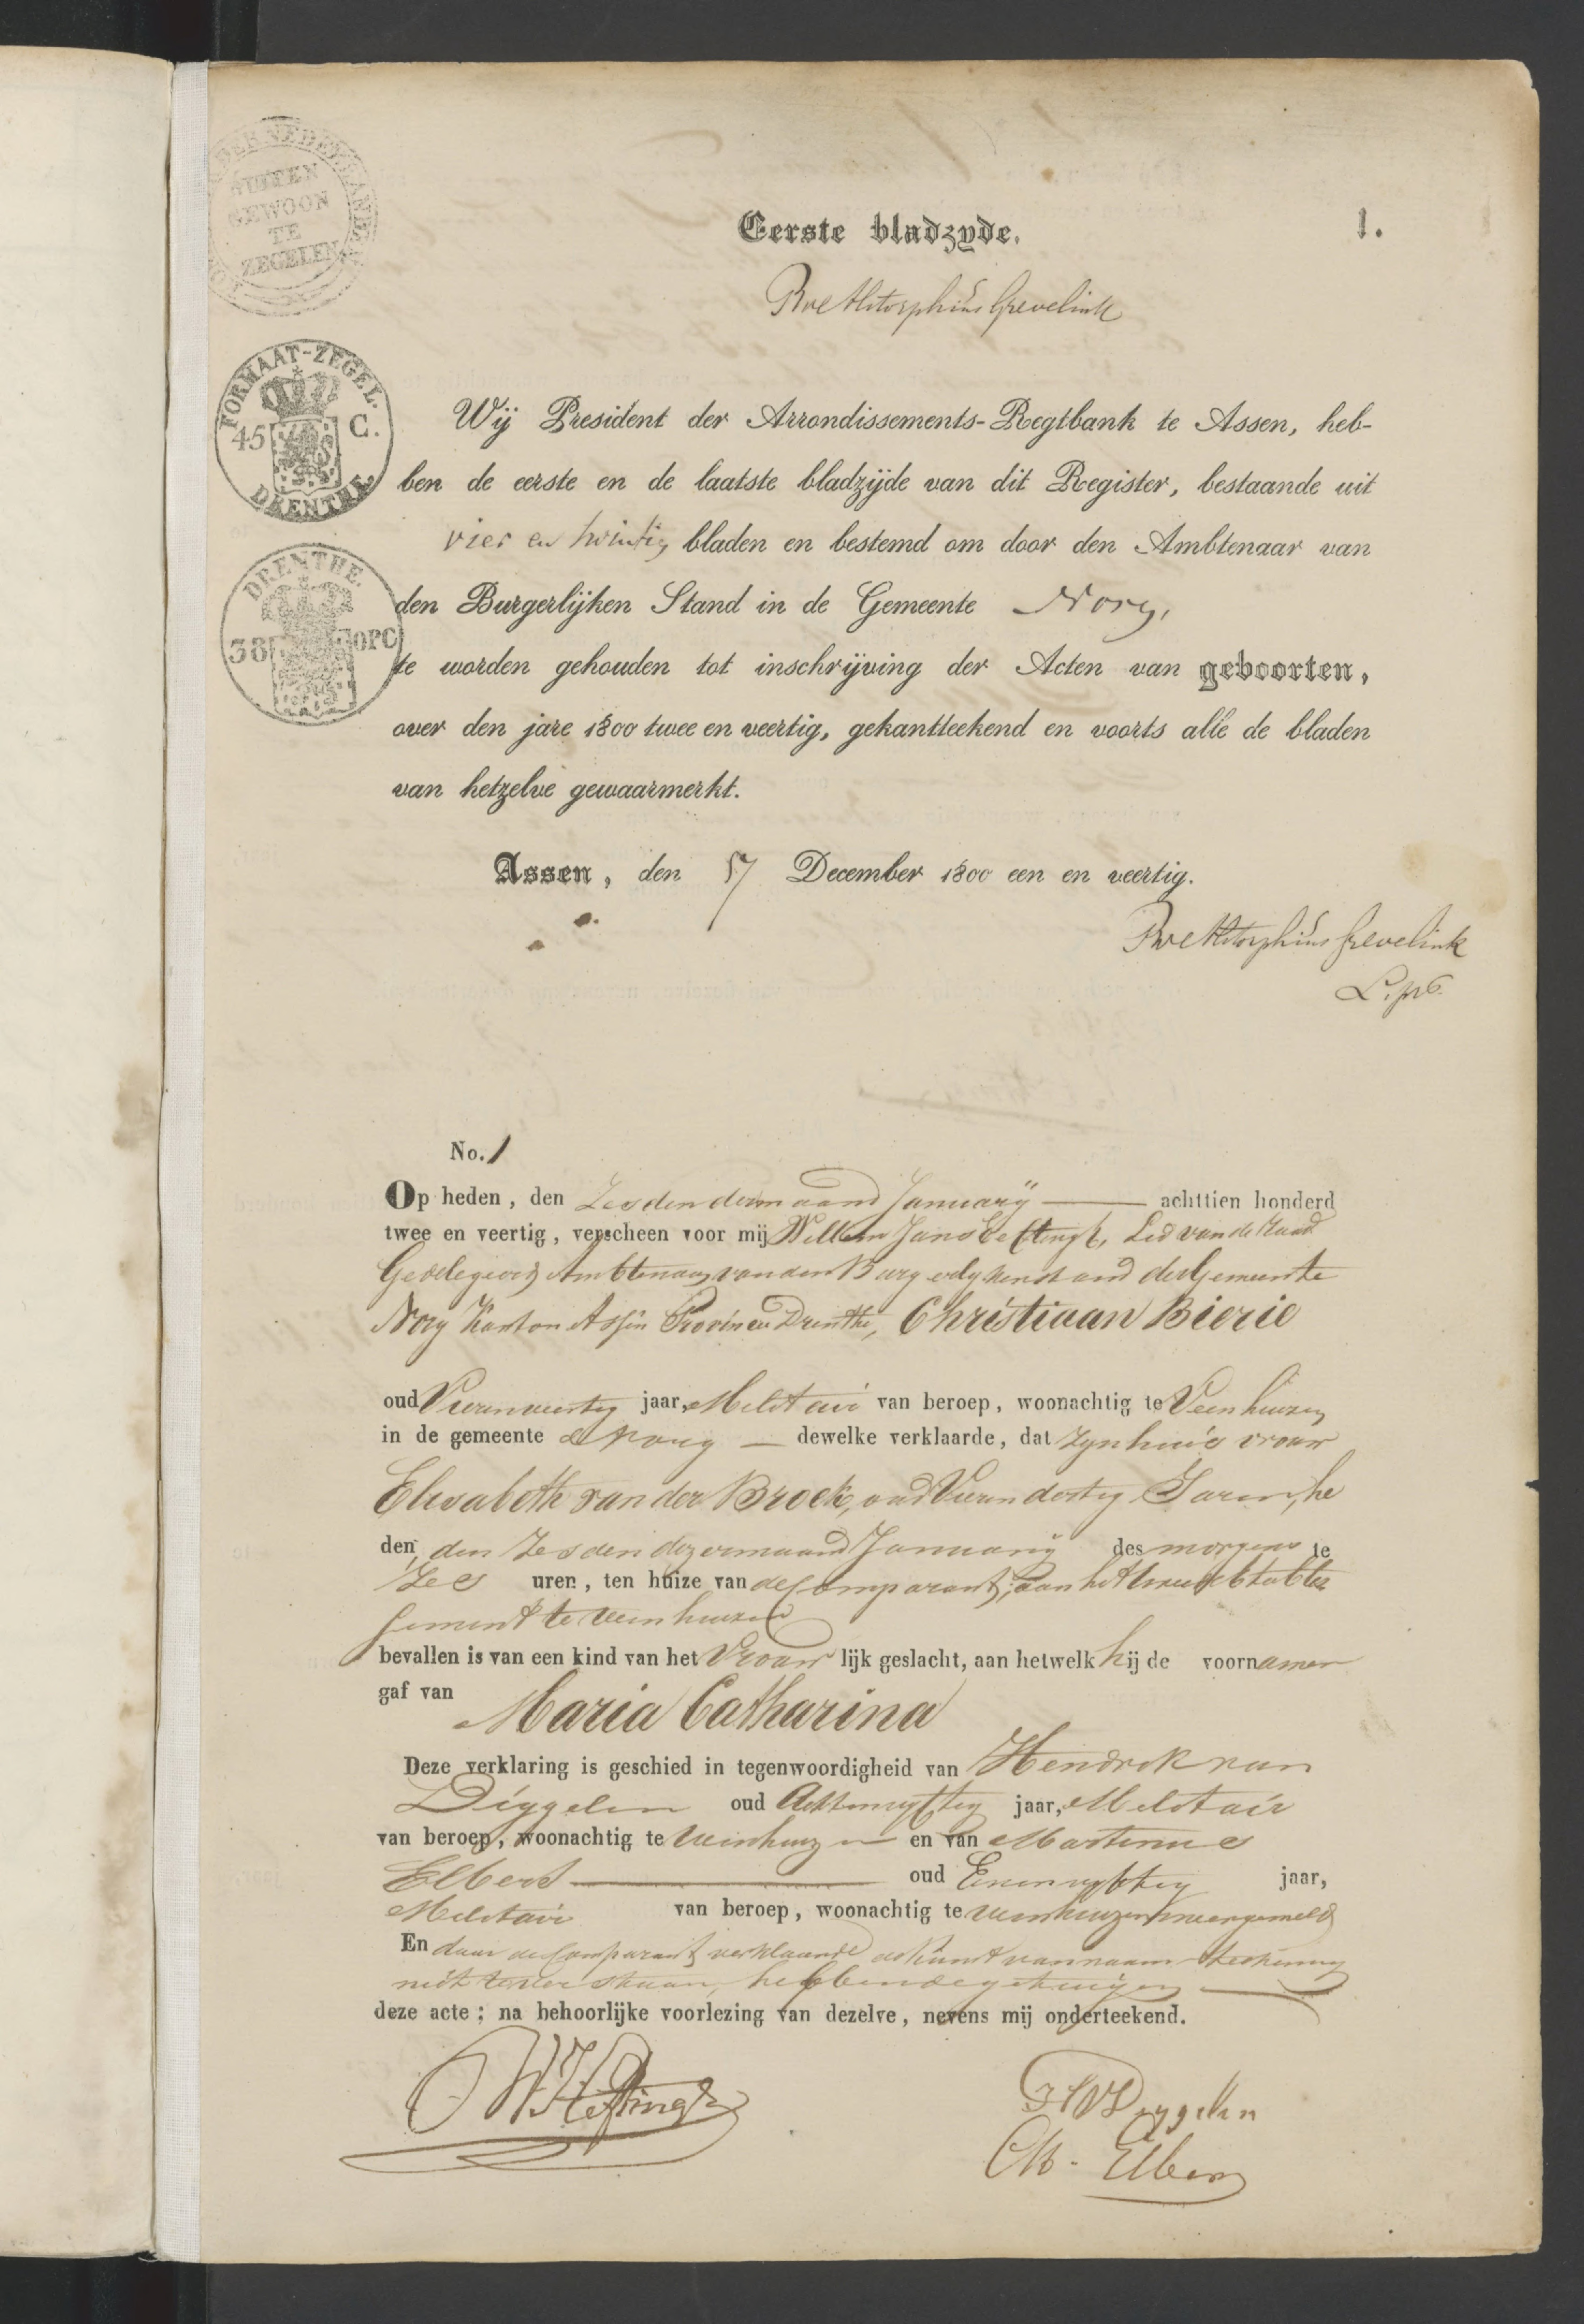 DER NEDERLANDEN
BUITEN
GEWOON
TE
ZEGELEN
Eerste bladzyde.
1.
FORMAAT-ZEGEL.
45 C.
DRENTHE
DRENTHE.
38 OPC
Wij President der Arrondissements-Regtbank te Assen, heb-
ben de eerste en de laatste bladzijde van dit Register, bestaande uit
vier en twintig bladen en bestemd om door den Ambtenaar van
den Burgerlijken Stand in de Gemeente Norg,
te worden gehouden tot inschrijving der Acten van geboorten,
over den jare 1800 twee en veertig, gekantteekend en voorts alle de bladen
van hetzelve gewaarmerkt.
Assen, den 17 December 1800 een en veertig.
No. 1
Op heden, den Zesden dermaand January achttien honderd
twee en veertig, verscheen voor mij Willem Jans Heftingh, Lid van de Raad
Gedelegeerd Ambtenaar van den Burgerlyken stand der Gemeente
Norg Kanton Assen Provincie Drenthe, Christiaan Bierie
oud Vierenveertig jaar, Militair van beroep, woonachtig te Veenhuizen
in de gemeente Norg dewelke verklaarde, dat zyn huisvrouw
Elisabeth van der Broek, oud Vierendertig Jaren, he
den, den Zesden dezer maand January des morgens te
Zes uren, ten huize van de Comparant, aan het derde Etablis
sement te Veenhuizen
bevallen is van een kind van het Vrouwlijk geslacht, aan hetwelk hij de voornamen
gaf van Maria Catharina
Deze verklaring is geschied in tegenwoordigheid van Hendrik van
Diggelen oud Achtenvyftig jaar, Militair
van beroep, woonachtig te Veenhuizen en van Martinus
Elbers oud Eenenvyftig jaar,
Militair van beroep, woonachtig te Veenhuizen meergemeld
En daar de Comparant verklaarde de kunst van naamteekening
niet te verstaan, hebben de getuigen
deze acte; na behoorlijke voorlezing van dezelve, nevens mij onderteekend.
WJHeftingh
HVDiggelen
M. Elbers